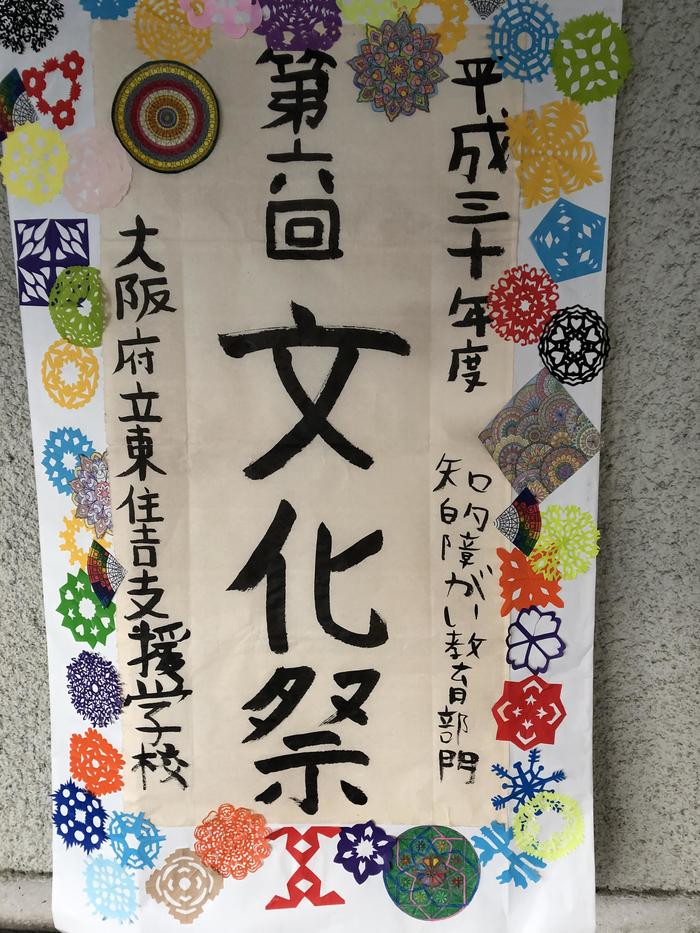 平成三十年度
知的障がい教育部門
第六回
文化祭
大阪府立東住吉支援学校